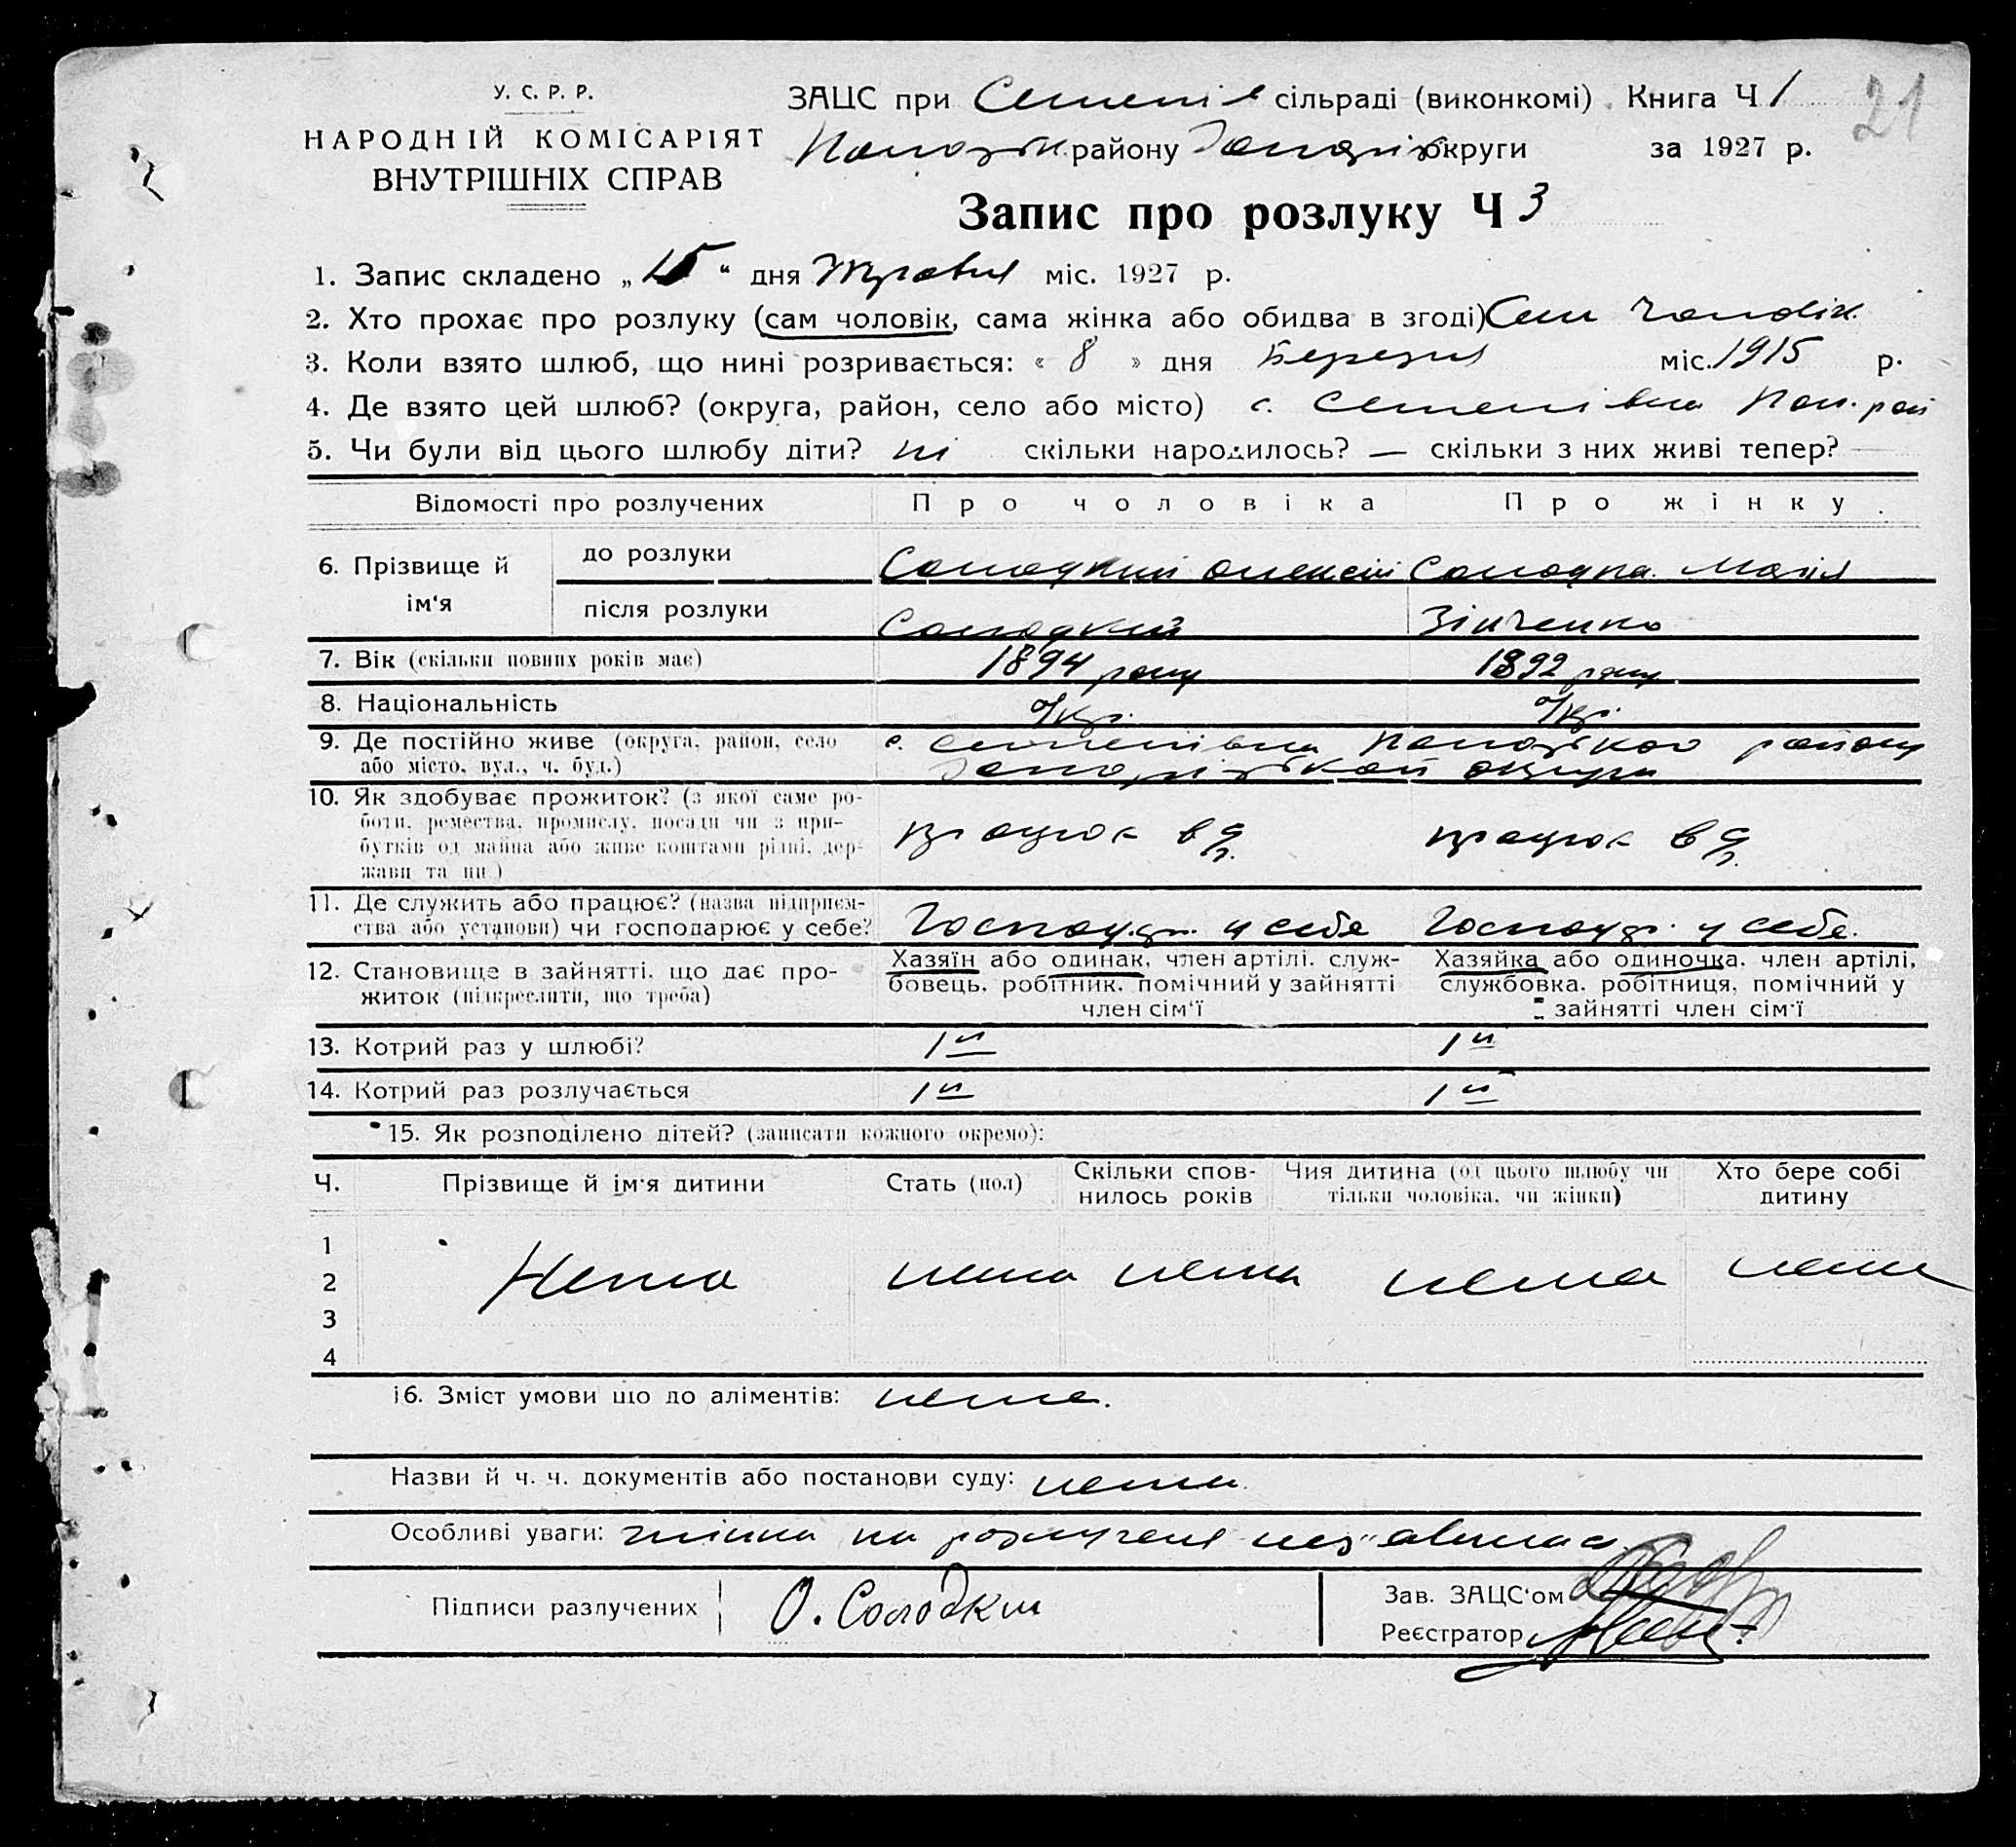 У. С. Р. Р.
НАРОДНІЙ КОМІСАРІЯТ
ВНУТРІШНІХ СПРАВ
ЗАЦС при Семенів сільраді (виконкомі) Книга Ч 1
21
району округи за 1927 р.
Запис про розлуку Ч 3
1. Запис складено „15“ дня Травня міс. 1927 р.
2. Хто прохає про розлуку (сам чоловік, сама жінка або обидва в згоді) Сам чоловік
3. Коли взято шлюб, що нині розривається: « 8 » дня Березня міс. 1915 р.
4. Де взято цей шлюб? (округа, район, село або місто) с. Семенівка Пол. рай
5. Чи були від цього шлюбу діти? ні скільки народилось? — скільки з них живі тепер? —
Відомості про розлучених Про чоловіка Про жінку
6. Прізвище й ім'я до розлуки Солодкий Олексій Солодка Марія
після розлуки Солодкий Зінченко
7. Вік (скільки повних років має) 1894 року 1892 року
8. Національність Укр. Укр.
9. Де постійно живе (округа, район, село або місто, вул., ч. буд.) с. Семенівка Пологського району
Запорізької округи
10. Як здобуває прожиток? (з якої саме роботи, ремества, промислу, посади чи з прибутків од майна або живе коштами рідні, держави та ин.) працює в с/г. працює в с/г.
11. Де служить або працює? (назва підприємства або установи) чи господарює у себе? Господар. у себе Господар. у себе.
12. Становище в зайнятті, що дає прожиток (підкреслити, що треба) Хазяїн або одинак, член артілі, службовець, робітник, помічний у зайнятті член сім'ї Хазяйка або одиночка, член артілі, службовка, робітниця, помічний у зайнятті член сім'ї
13. Котрий раз у шлюбі? 1й 1й
14. Котрий раз розлучається 1й 1й
15. Як розподілено дітей? (записати кожного окремо):
Ч. Прізвище й ім'я дитини Стать (пол) Скільки сповнилось років Чия дитина (од цього шлюбу чи тільки чоловіка, чи жінки) Хто бере собі дитину
1
2 Нема нема нема нема нема
3
4
16. Зміст умови що до аліментів: нема.
Назви й ч. ч. документів або постанови суду: нема.
Особливі уваги: жінка на розлучення нез'явилась
Підписи разлучених О. Солодкий
Зав. ЗАЦС'ом
Реєстратор